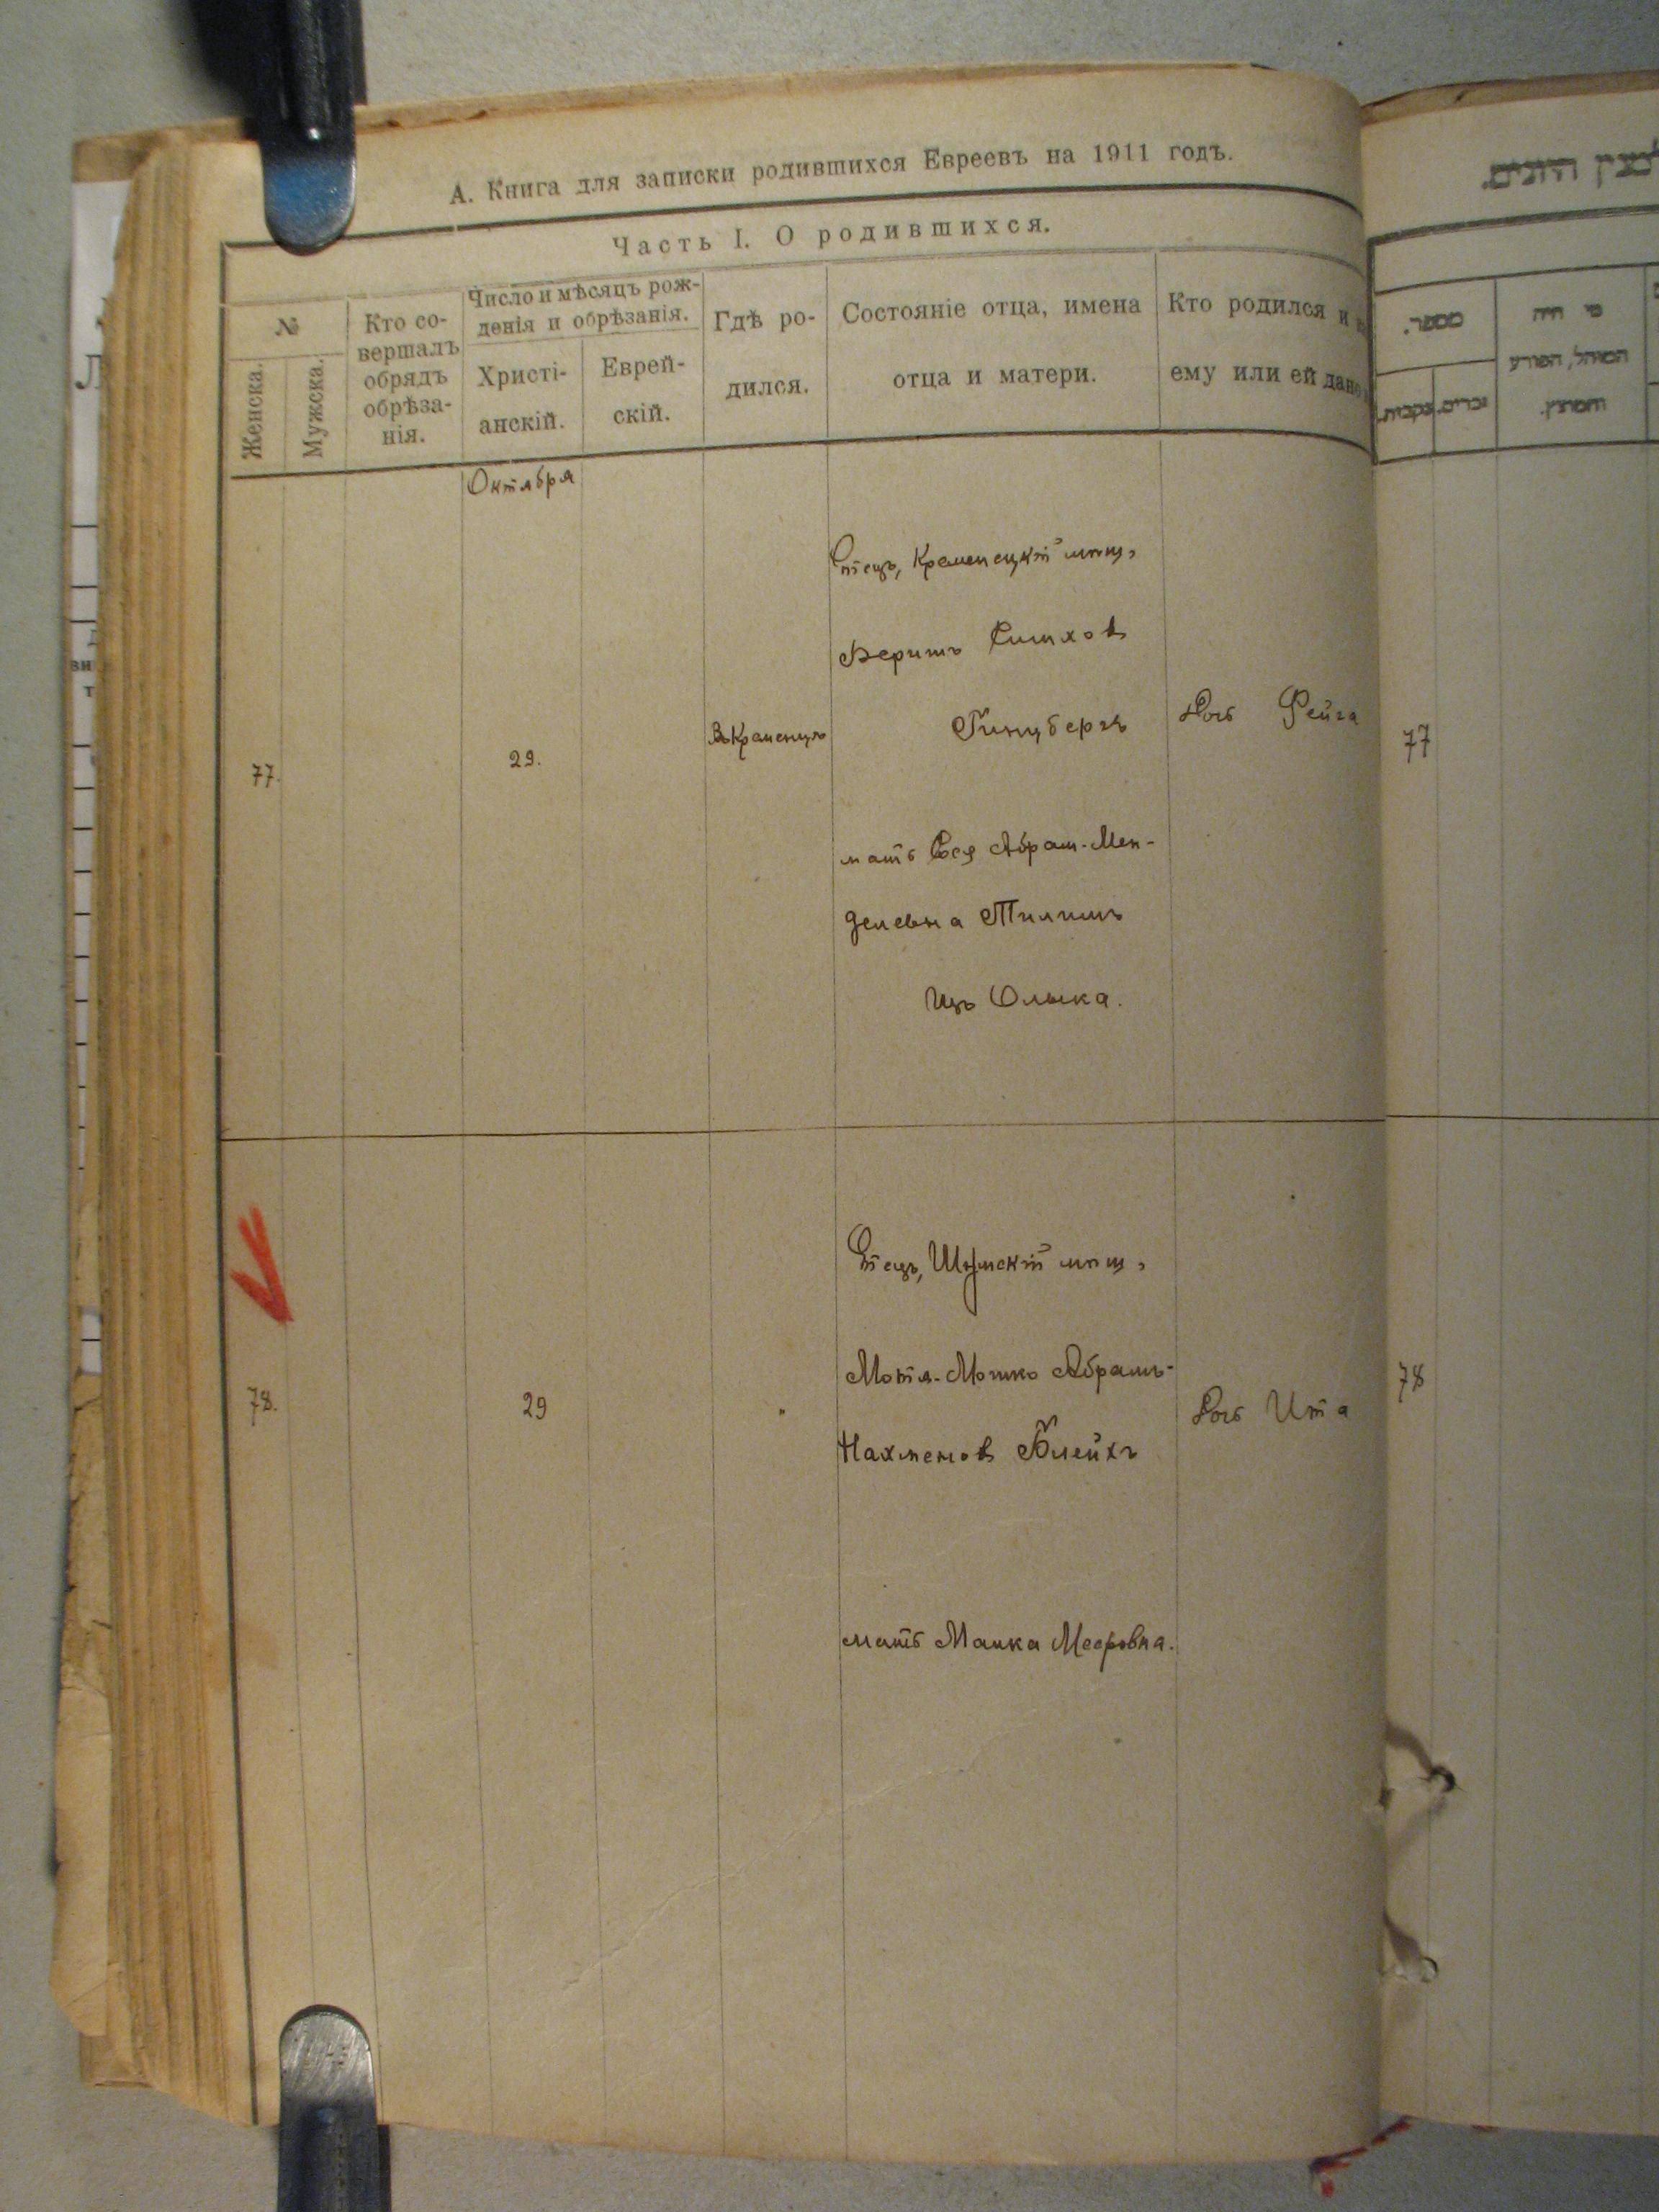 А. Книга для записки родившихся Евреевъ на 1911 годъ.
Часть I. О родившихся.
№
Женска.
Мужска.
Кто со-
вершалъ
обрядъ
обрѣза-
нія.
Число и мѣсяцъ рож-
денія и обрѣзанія.
Христі-
анскій.
Еврей-
скій.
Гдѣ ро-
дился.
Состояніе отца, имена
отца и матери.
Кто родился и
ему или ей дано
Октября
77.
29.
Въ Кременцѣ
Отецъ, Кременецкій мѣщ.
Беришъ
Гинцбергъ
мать Бася Абрам-Мен-
делевна
Изъ Олыка.
Дочь Фейга
78.
29
"
Отецъ, Шумскій мѣщ.
Мотя-Мошко Абрамъ-
Нахменовъ Блейхъ
мать Малка Мееровна.
Дочь Ита
מספר.
נקבות.
זכרים.
מי היה
המוהל, הפורע
והמוצץ.
77
78